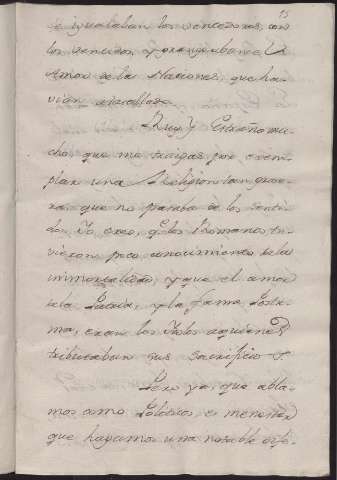 15
se igualaban los vencedores, con
los vencidos, y grangeaban el
Amor de las Naciones, que ha-
vian
Ruy Y Estraño mu-
cho que me traigas por exem-
plar una Religion tan grose-
ra, que no pasaba de los senti-
dos. Yo creo, q.e los Romanos tu-
vieron poco conocimiento de la
inmortalidad, y que el amor
de la Patria, y la fama Postu-
ma, eran los Ydolos aquienes
tributaban sus sacrificios
Pero ya, que abla-
mos como Politicos, es menester
que hagamos una notable